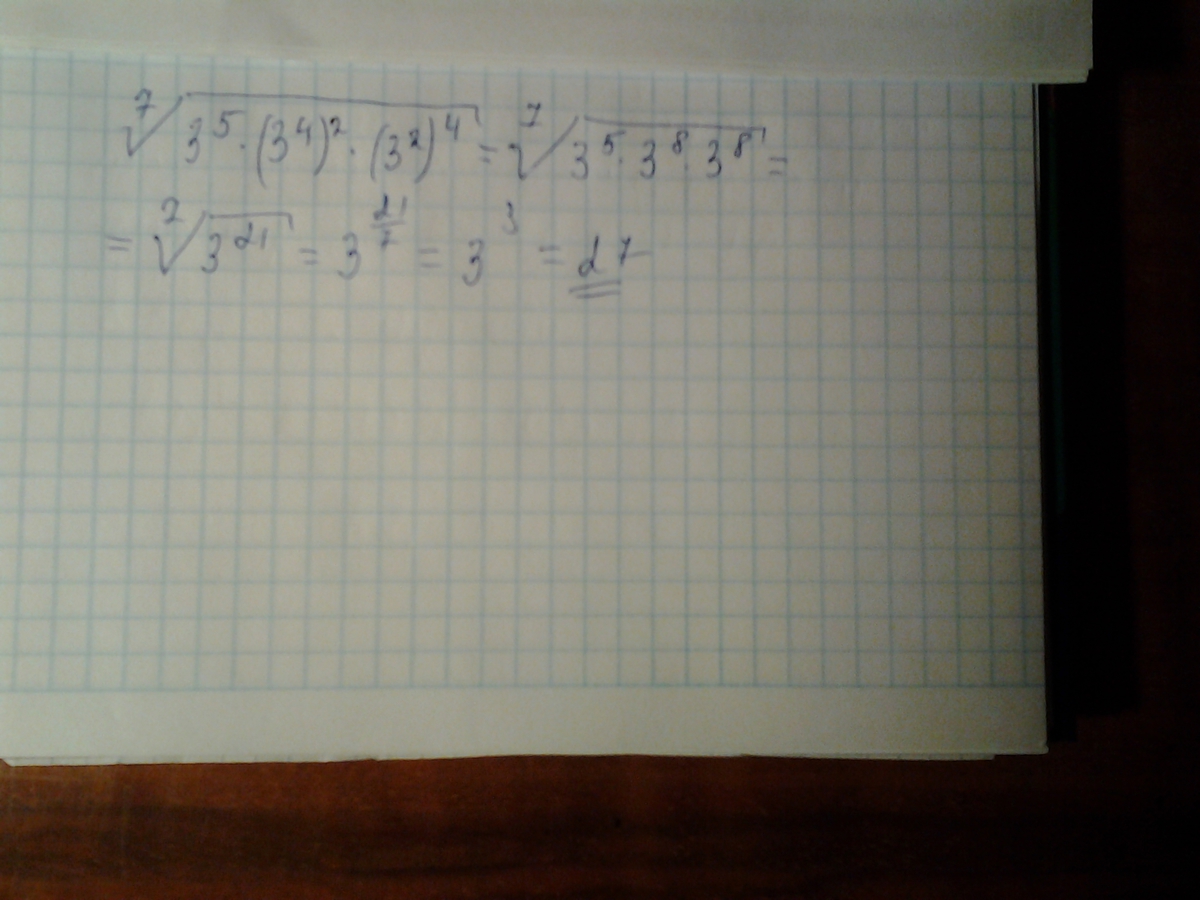 ⁷√(3⁵·(3⁴)²·(3²)⁴) = ⁷√(3⁵·3⁸·3⁸) =
= ⁷√(3²¹) = 3^(21/7) = 3³ = 27